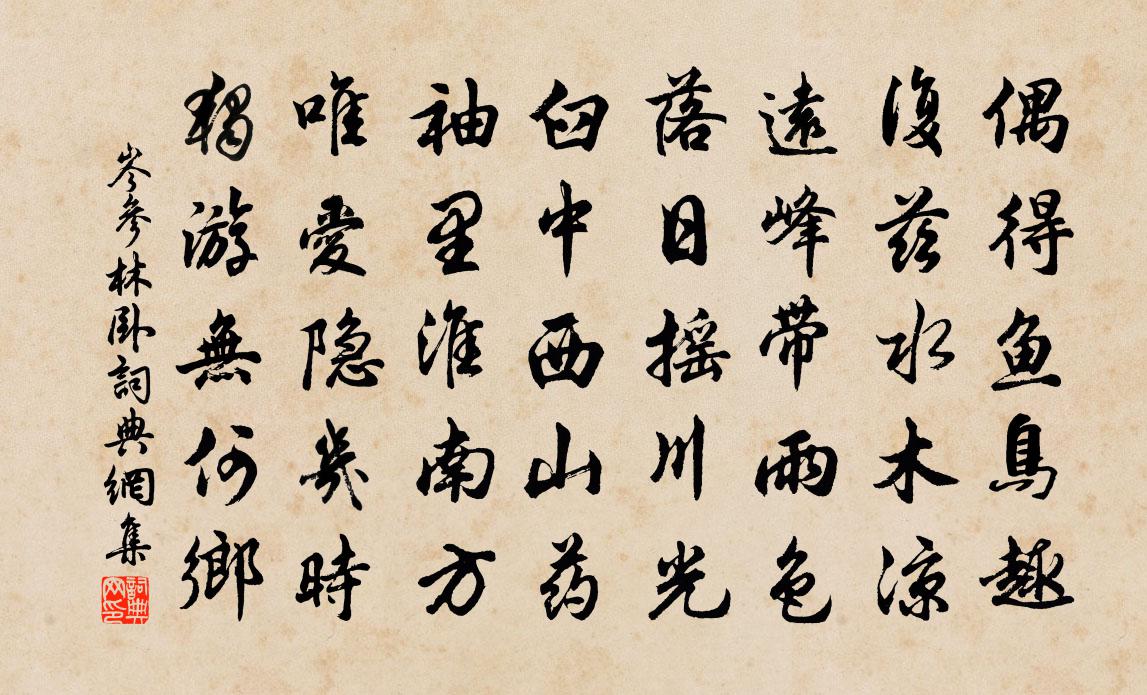 偶得魚鳥趣
復茲水木涼
遠峰帶雨色
落日搖川光
臼中西山药
袖里淮南方
唯愛隐幾時
獨游無何鄉
岑參林卧詞典網集
詞典网印